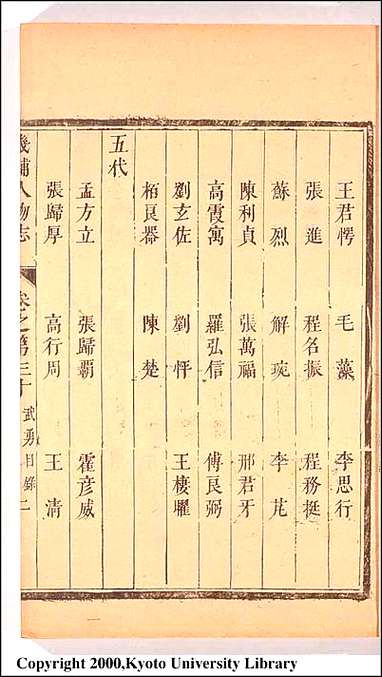 王君愕 毛藻 李思行
張進 程名振 程務挺
蘇烈 解琬 李芃
陳利貞 張萬福 邢君牙
高霞寓 羅弘信 傅良弼
劉玄佐 劉怦 王棲曜
栢良器 陳楚
五代
孟方立 張歸霸 霍彦威
張歸厚 高行周 王清
畿輔人物志 卷之第三十 武勇目錄 二
Copyright 2000,Kyoto University Library